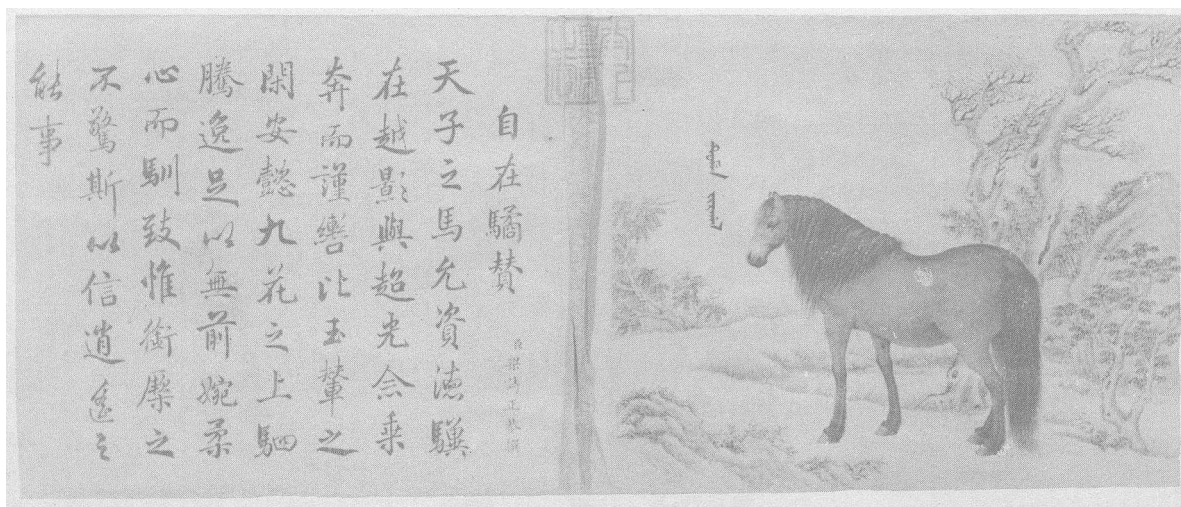 自在驈賛
臣梁詩正敬撰
天子之馬允資德驥
在越影與超光僉乗
奔而謹轡比玉輦之
閑安懿九花之上駟
騰逸足以無前婉柔
心而馴致惟銜橜之
不驚斯以信逍遙之
能事